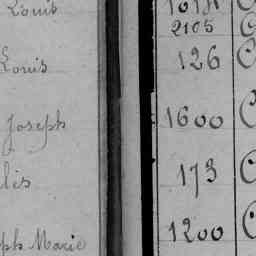 Louis
2105 C
Louis 126 C
Joseph 1600 C
lis 173 C
ph Marie 1200 C